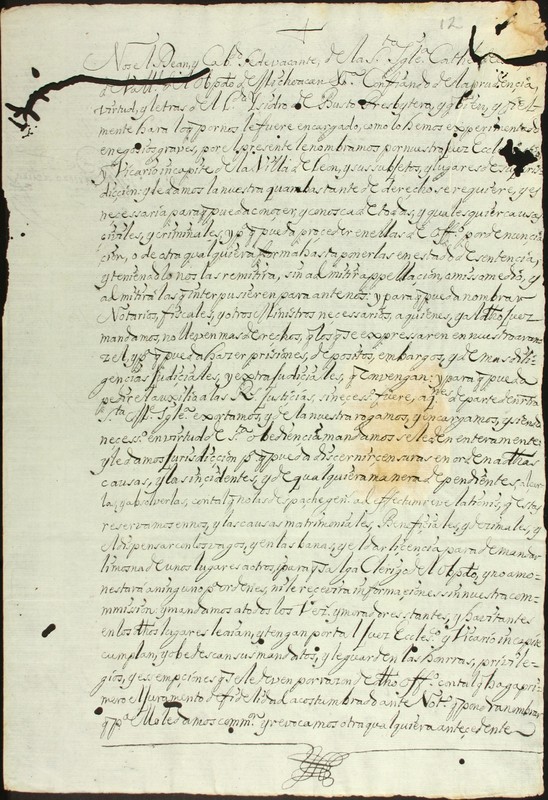 12
Nos el Dean, y Cab.º Sedevacante, de la S.ta Igl.ª Cathedral
de Vall.d del Obpdo de Mechoacan &.ª Confiando de la prudencia,
virtud, y letras del L.do Isidro de Busto Presbytero, y q bien, y fiel
mente hara lo q por nos le fuere encargado, como lo hemos experimentado
en negocios graves, por el presente lo nombramos por nuestro Juez Eccles.co
y Vicario in capite de la Villa de Leon, y sus subjetos, y lugares de su juris
diccion: y le damos la nuestra quan bastante de derecho se requiere, y es
necessaria para q pueda conozer, y conosca de todas, y qualesquier causas
civiles, y criminales, y p.ª q pueda proceder en ellas de off.º por denuncia
cion, o de otra qualquiera forma hasta ponerlas en estado de sentencia,
y teniendolo nos las remitirá, sin admitir appellacion, omisso medio, y
admitira las q interpusieren para ante nos: y para q pueda nombrar
Notarios, fiscales, y otros Ministros necessarios, a quienes, y a dho Juez
mandamos, no lleven mas derechos, q los q se expressaren en nuestro aran
zel, y p.ª q pueda hazer prisiones, depositos, embargos, y demas dili-
gencias judiciales, y extrajudiciales, q convengan: y para q pueda
pedir el auxilio a las R.s Justicias, si necess.º fuere, a q.nes de parte de nr̃a
S.ta M.e Igl.ª exortamos, y de la nuestra rogamos, y encargamos, y siendo
necess.º en virtud de S.ta obediencia mandamos se le den enteramente:
y le damos jurisdiccion p.ª q pueda discernir censuras en orden a dhas
causas, y las incidentes, y de qualquiera manera dependientes, alzar
las, y absolverlas, con tal q no las despache gen.s ad effectum revelationis, q estas
reservamos en nos, y las causas matrimoniales, Beneficiales, y dezimales, y
el dispensar con los vagos, y en las banas, y el dar licencia para demandar
limosna de unos lugares a otros, y para q salga Clerigo del Obpdo, y no amo-
nestará a ninguno p.ª ordenes, ni le recevirá informaciones sin nuestra com-
mission, y mandamos a todos los Vez.s y moradores, estantes, y havitantes
en los dhos lugares le aian, y tengan por tal Juez Eccles.co y Vicario in capite
cumplan, y obedescan sus mandatos, y le guarden las honrras, privile-
gios, y essempciones q se le deven por razon de dho off.º con tal q haga pri-
mero el juramento de fidelidad acostumbrado ante Not.º q podra nombrar
q p.ª ello le damos comm.on y revocamos otra qualquiera antecedente